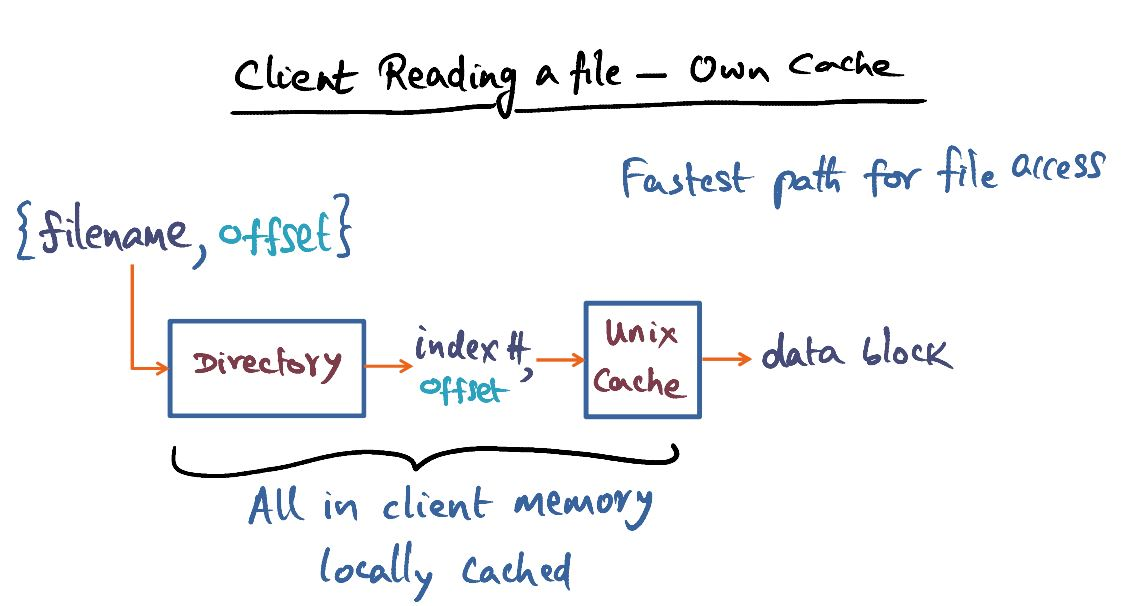 Client Reading a file – Own Cache
Fastest path for file access
{filename, offset}
Directory
index #,
offset
Unix
Cache
data block
All in client memory
locally cached